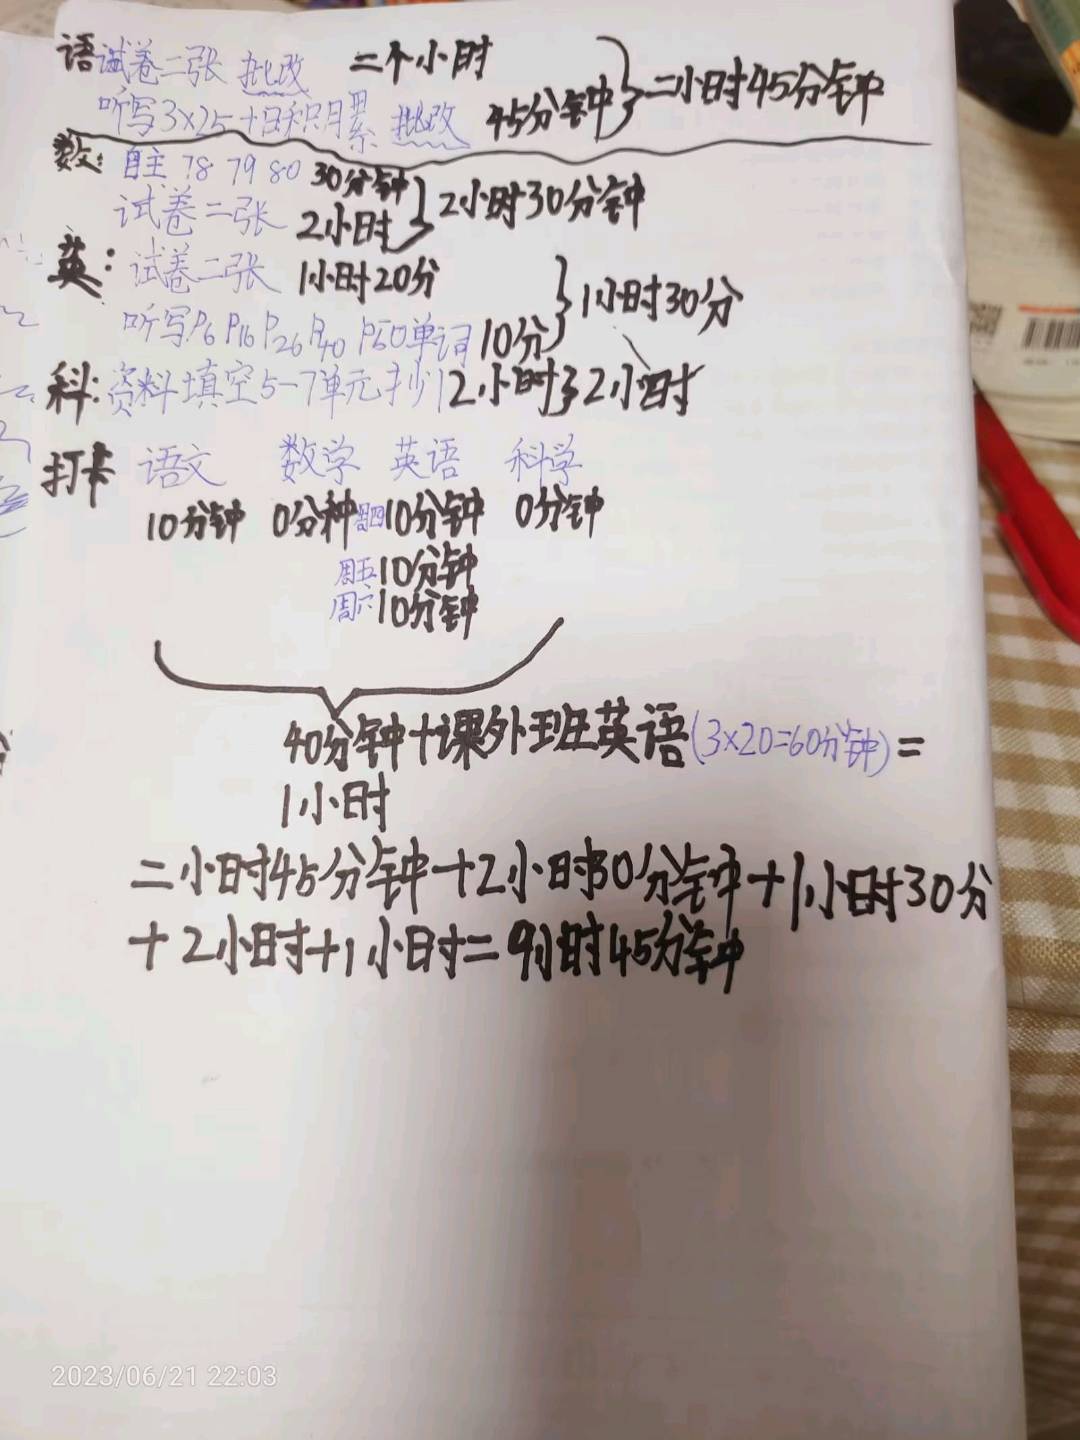 语试卷二张 批改 二个小时
听写3×25+日积月累 批改 45分钟}二小时45分钟
数: 自主 78 79 80 30分钟
试卷二张 2小时}2小时30分钟
英: 试卷二张 1小时20分
听写P6 P16 P26 P40 P50单词 10分}1小时30分
科: 资料填空5-7单元抄 2小时}2小时
打卡 语文 数学 英语 科学
10分钟 0分种 周四10分钟 0分钟
周五10分钟
周六10分钟
40分钟+课外班英语(3×20=60分钟)=
1小时
二小时45分钟+2小时30分钟+1小时30分
+2小时+1小时=9小时45分钟
2023/06/21 22:03